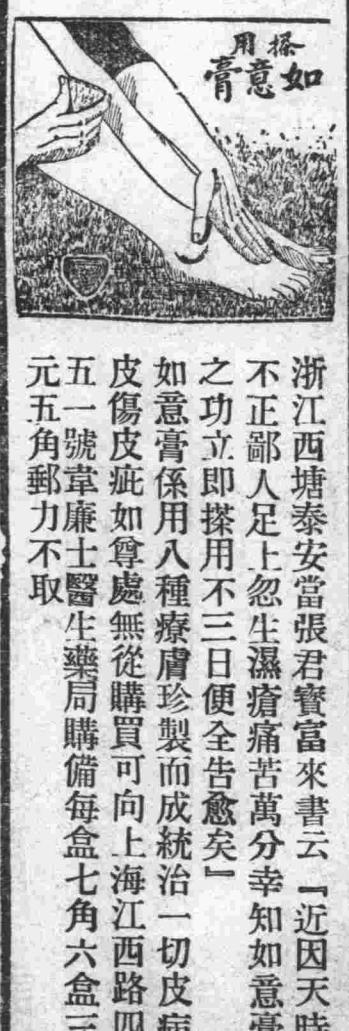 搽用
如意膏
浙江西塘泰安當張君寶富來書云『近因天時
不正鄙人足上忽生濕瘡痛苦萬分幸知如意膏
之功立即搽用不三日便全告愈矣』
如意膏係用八種療膚珍製而成統治一切皮病
皮傷皮疵如尊處無從購買可向上海江西路四
五一號韋廉士醫生藥局購備每盒七角六盒三
元五角郵力不取